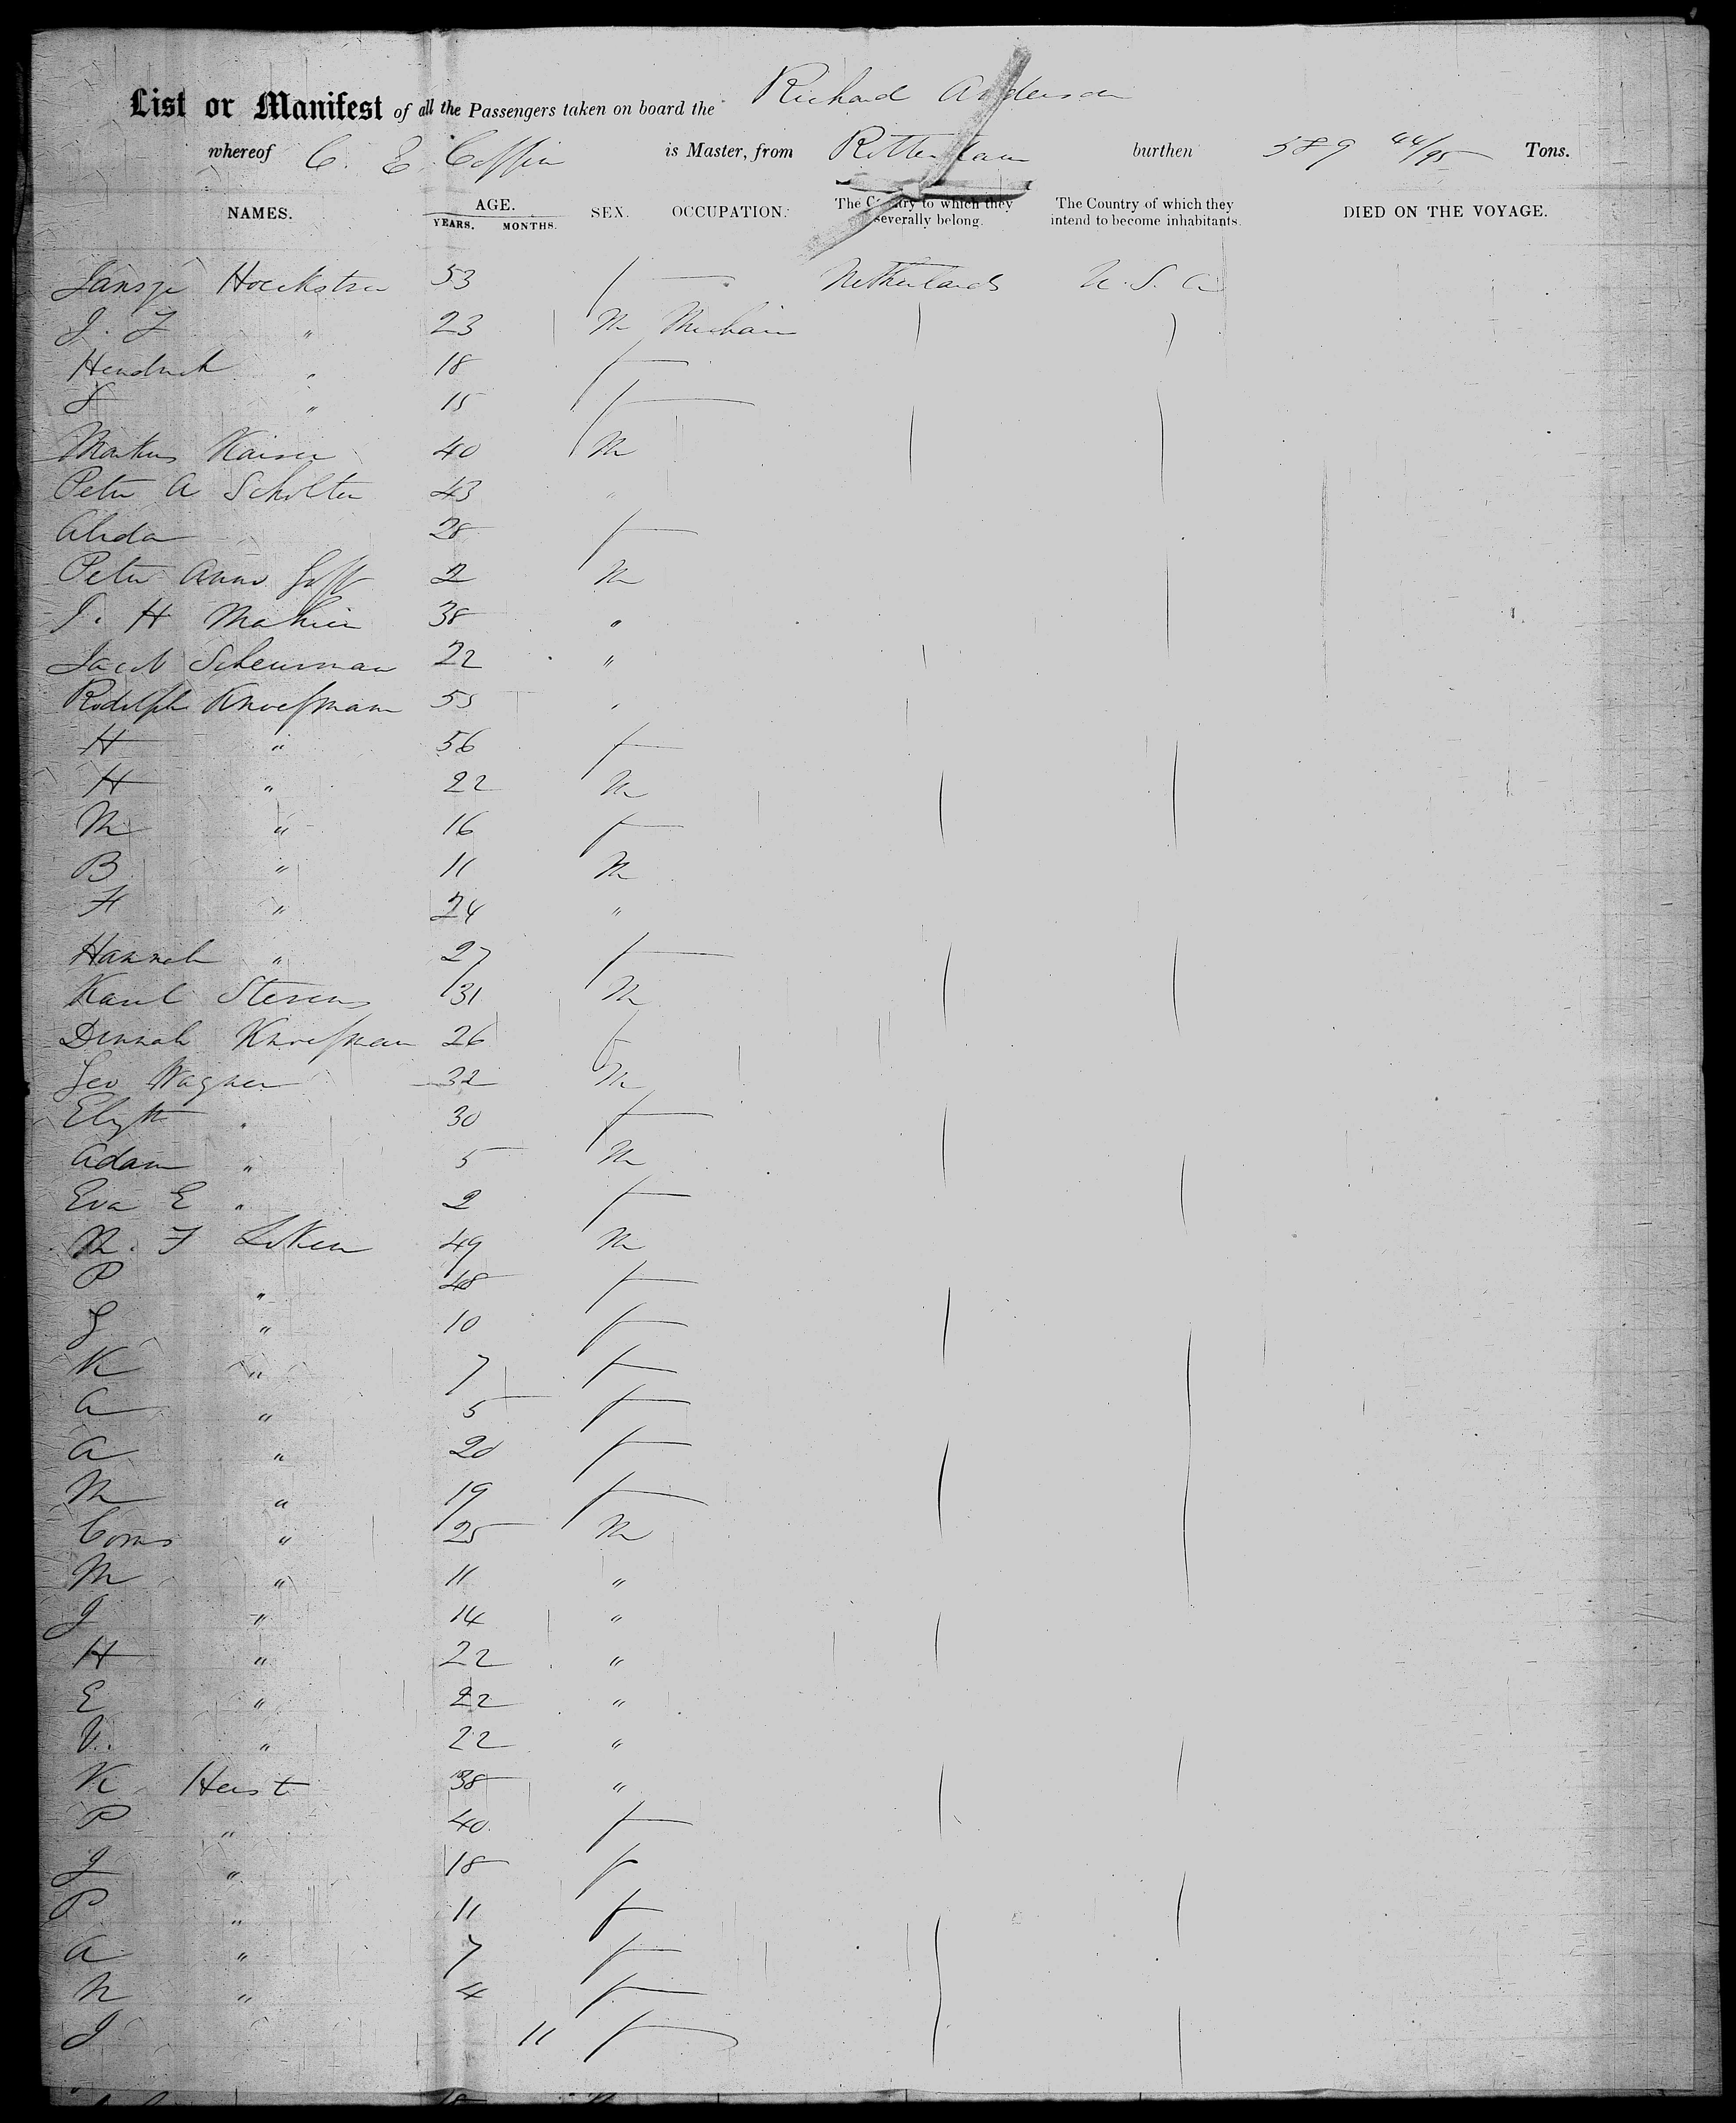 List or Manifest of all the Passengers taken on board the Richard Anderson
whereof C. E. Coffin is Master, from Rotterdam burthen 589 44/95 Tons.
NAMES. AGE. YEARS. MONTHS. SEX. OCCUPATION. The Country to which they severally belong. The Country of which they intend to become inhabitants. DIED ON THE VOYAGE.
Hoeckstra 53 f Netherlands U. S. A
J. F " 23 M
Hendrick " 18 f
" 15 f
Kaiser 40 M
Peter A Scholten 43 "
Alida 28 f
Peter 2 M
J. H 38 "
Jacob Scheurman 22 "
Rodolph Knoefsman 55 "
H " 56 f
H " 22 M
M " 16 f
B " 11 M
F " 24 "
Hannah " 27 f
Karel Stevens 31 M
Dinnah Knoefsman 26 f
Geo Wagner 32 M
Elizth " 30 f
Adam " 5 M
Eva E " 2 f
F 49 M
P " 48 f
G " 10 f
K " 7 f
A " 5 f
A " 20 f
M " 19 f
Corns " 25 M
M " 11 "
J " 14 "
H " 22 "
E " 22 "
" 22 "
K Heist 38 "
P " 40 f
J " 18 f
P " 11 f
A " 7 f
N " 4 f
J 11 f